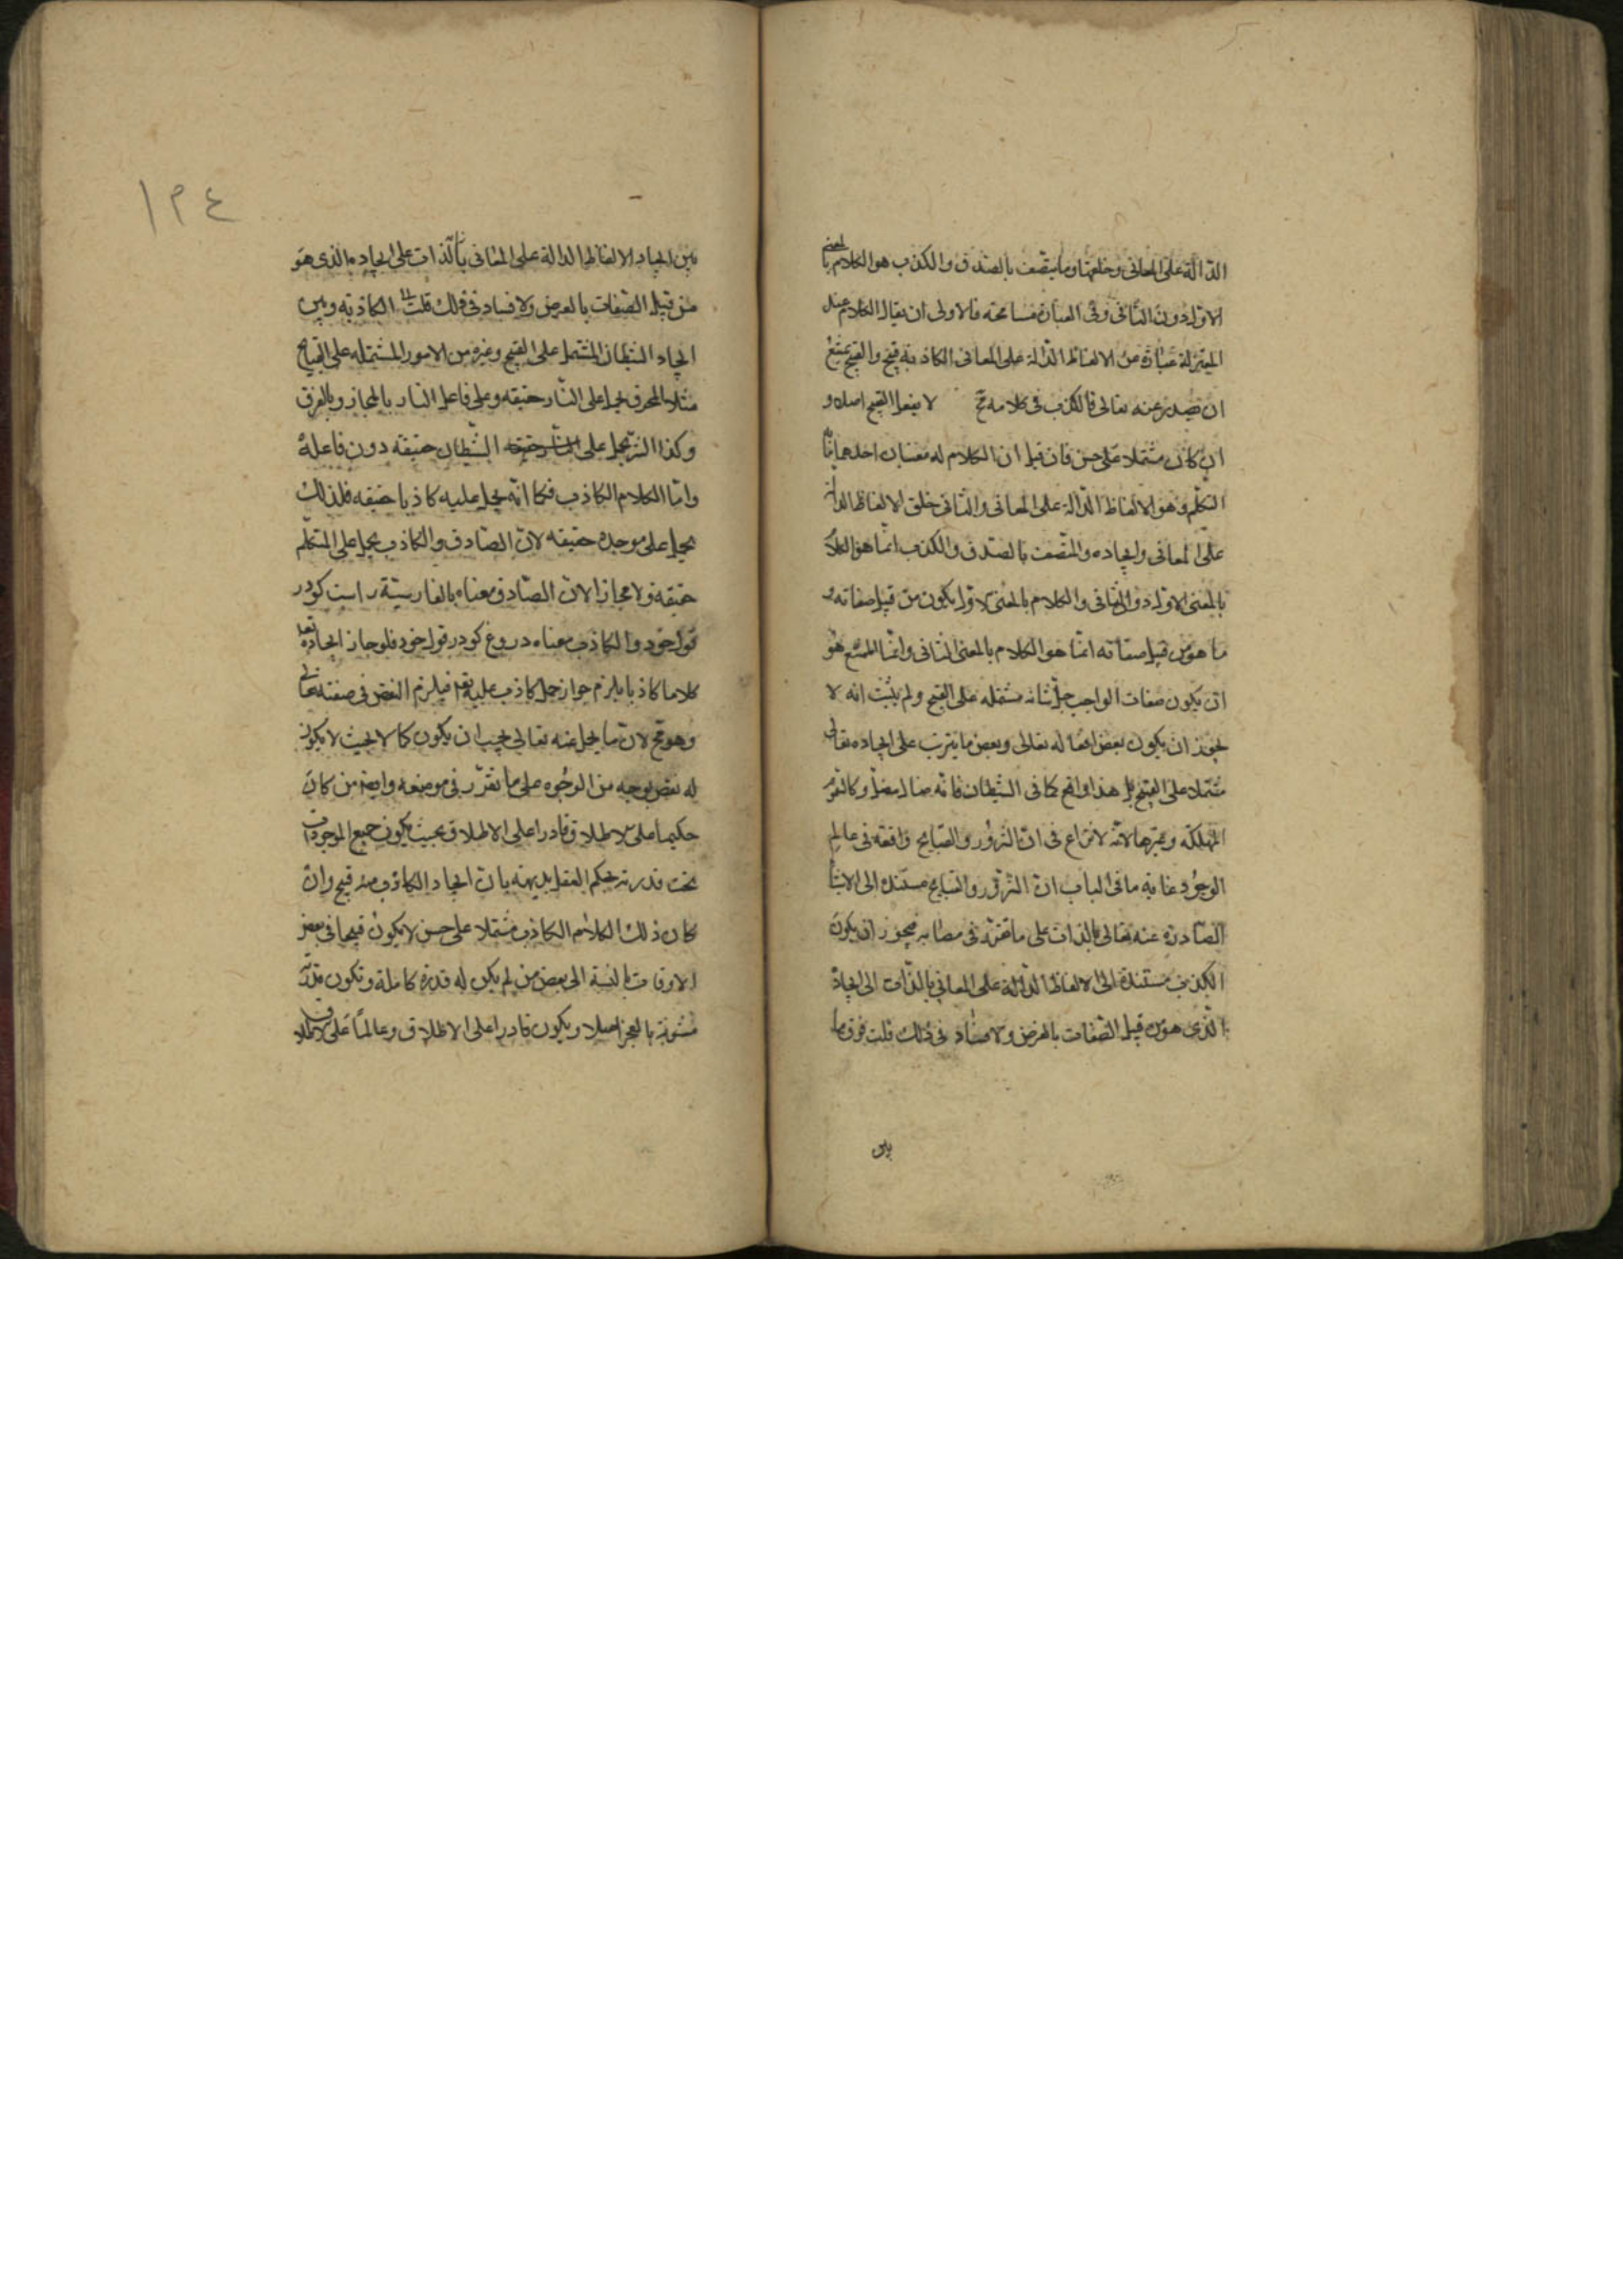 الدالة على المعانى وخلقها وما يتصف بالصدق والكذب هو الكلام بالمعنى
الاول دون الثانى وفى العبارة مسامحة فالاولى ان يقال الكلام عند
المعتزلة عبارة عن الالفاظ الدالة على المعانى الكاذبة قبيح والقبيح يمتنع
ان يصدر عنه تعالى فالكذب فى كلامه مح لا يفعل القبيح اصلا و
ان كان مشتملا على حسن فان قيل ان الكلام له معنيان احدهما ما
التكلم وهو الالفاظ الدالة على المعانى والثانى خلق الالفاظ الدالة
على المعانى وايجاده والمتصف بالصدق والكذب انما هو الكلام
بالمعنى الاول دون الثانى والكلام بالمعنى الاول لا يكون من قبيل صفاته و
ما هو من قبيل صفاته انما هو الكلام بالمعنى الثانى وانما الممتنع هو
ان يكون صفات الواجب جل شانه مشتمله على القبيح ولم يثبت انه لا
يجوز ان يكون بعض افعاله تعالى وبعض ما يترتب على ايجاده تعالى
مشتملا على القبيح بل هذا واقع كما فى الشيطان فانه ضال مضل وكالسموم
المهلكة وغيرها لانه لا نزاع فى ان الشرور والقبايح واقعة فى عالم
الوجود غاية ما فى الباب ان الشرور والقبايح مستنده الى الاشيا
الصادرة عنه تعالى بالذات على ما تقرر فى مظانه فيجوز ان يكون
الكذب مستندة الى الالفاظ الدالة على المعانى بالذات الى ايجاد
الذى هو من قبيل الصفات بالعرض ولا فساد فى ذلك قلت فرق ما
بين
١٣٤
بين ايجاد الالفاظ الدالة على المعانى بالذات على ايجاده الذى هو
من قبيل الصفات بالعرض ولا فساد فى ذلك قلت الكاذبة وبين
ايجاد الشيطان المشتمل على القبيح وغيره من الامور المشتمله على القبايح
مثلا المحرق يحمل على النار حقيقه وعلى فاعل النار بالمجاز وبالفرق
وكذا الشر يحمل على الشيطان حقيقه دون فاعله
واما الكلام الكاذب فكما انه يحمل عليه كاذبا حقيقه فلذلك
يحمل على موجده حقيقه لان الصادق والكاذب يحمل على المتكلم
حقيقه ولا مجازا لان الصادق معناه بالفارسية راست كو در
قول خود والكاذب معناه دروغ كو در قول خود فلو جاز ايجاده تعالى
كلاما كاذبا يلزم جواز حمل كاذب عليه تعالى فيلزم النقص فى صفته تعالى
وهو مح لان ما يحمل عنه تعالى يجب ان يكون كمالا بحيث لا يكون
له نقص بوجه من الوجوه على ما تقرر فى موضعه وايضا من كان
حكيما على الاطلاق قادرا على الاطلاق بحيث يكون جميع الموجودات
تحت قدرته يحكم العقل بديهة بان ايجاد الكاذب منه قبيح وان
كان ذلك الكلام الكاذب مشتملا على حسن لا يكون قبيحا فى بعض
الاوقات بالنسبة الى بعض من لم يكن له قدرة كاملة وتكون قدرته
مشوبة بالعجز اصلا ويكون قادرا على الاطلاق وعالما على الاطلاق